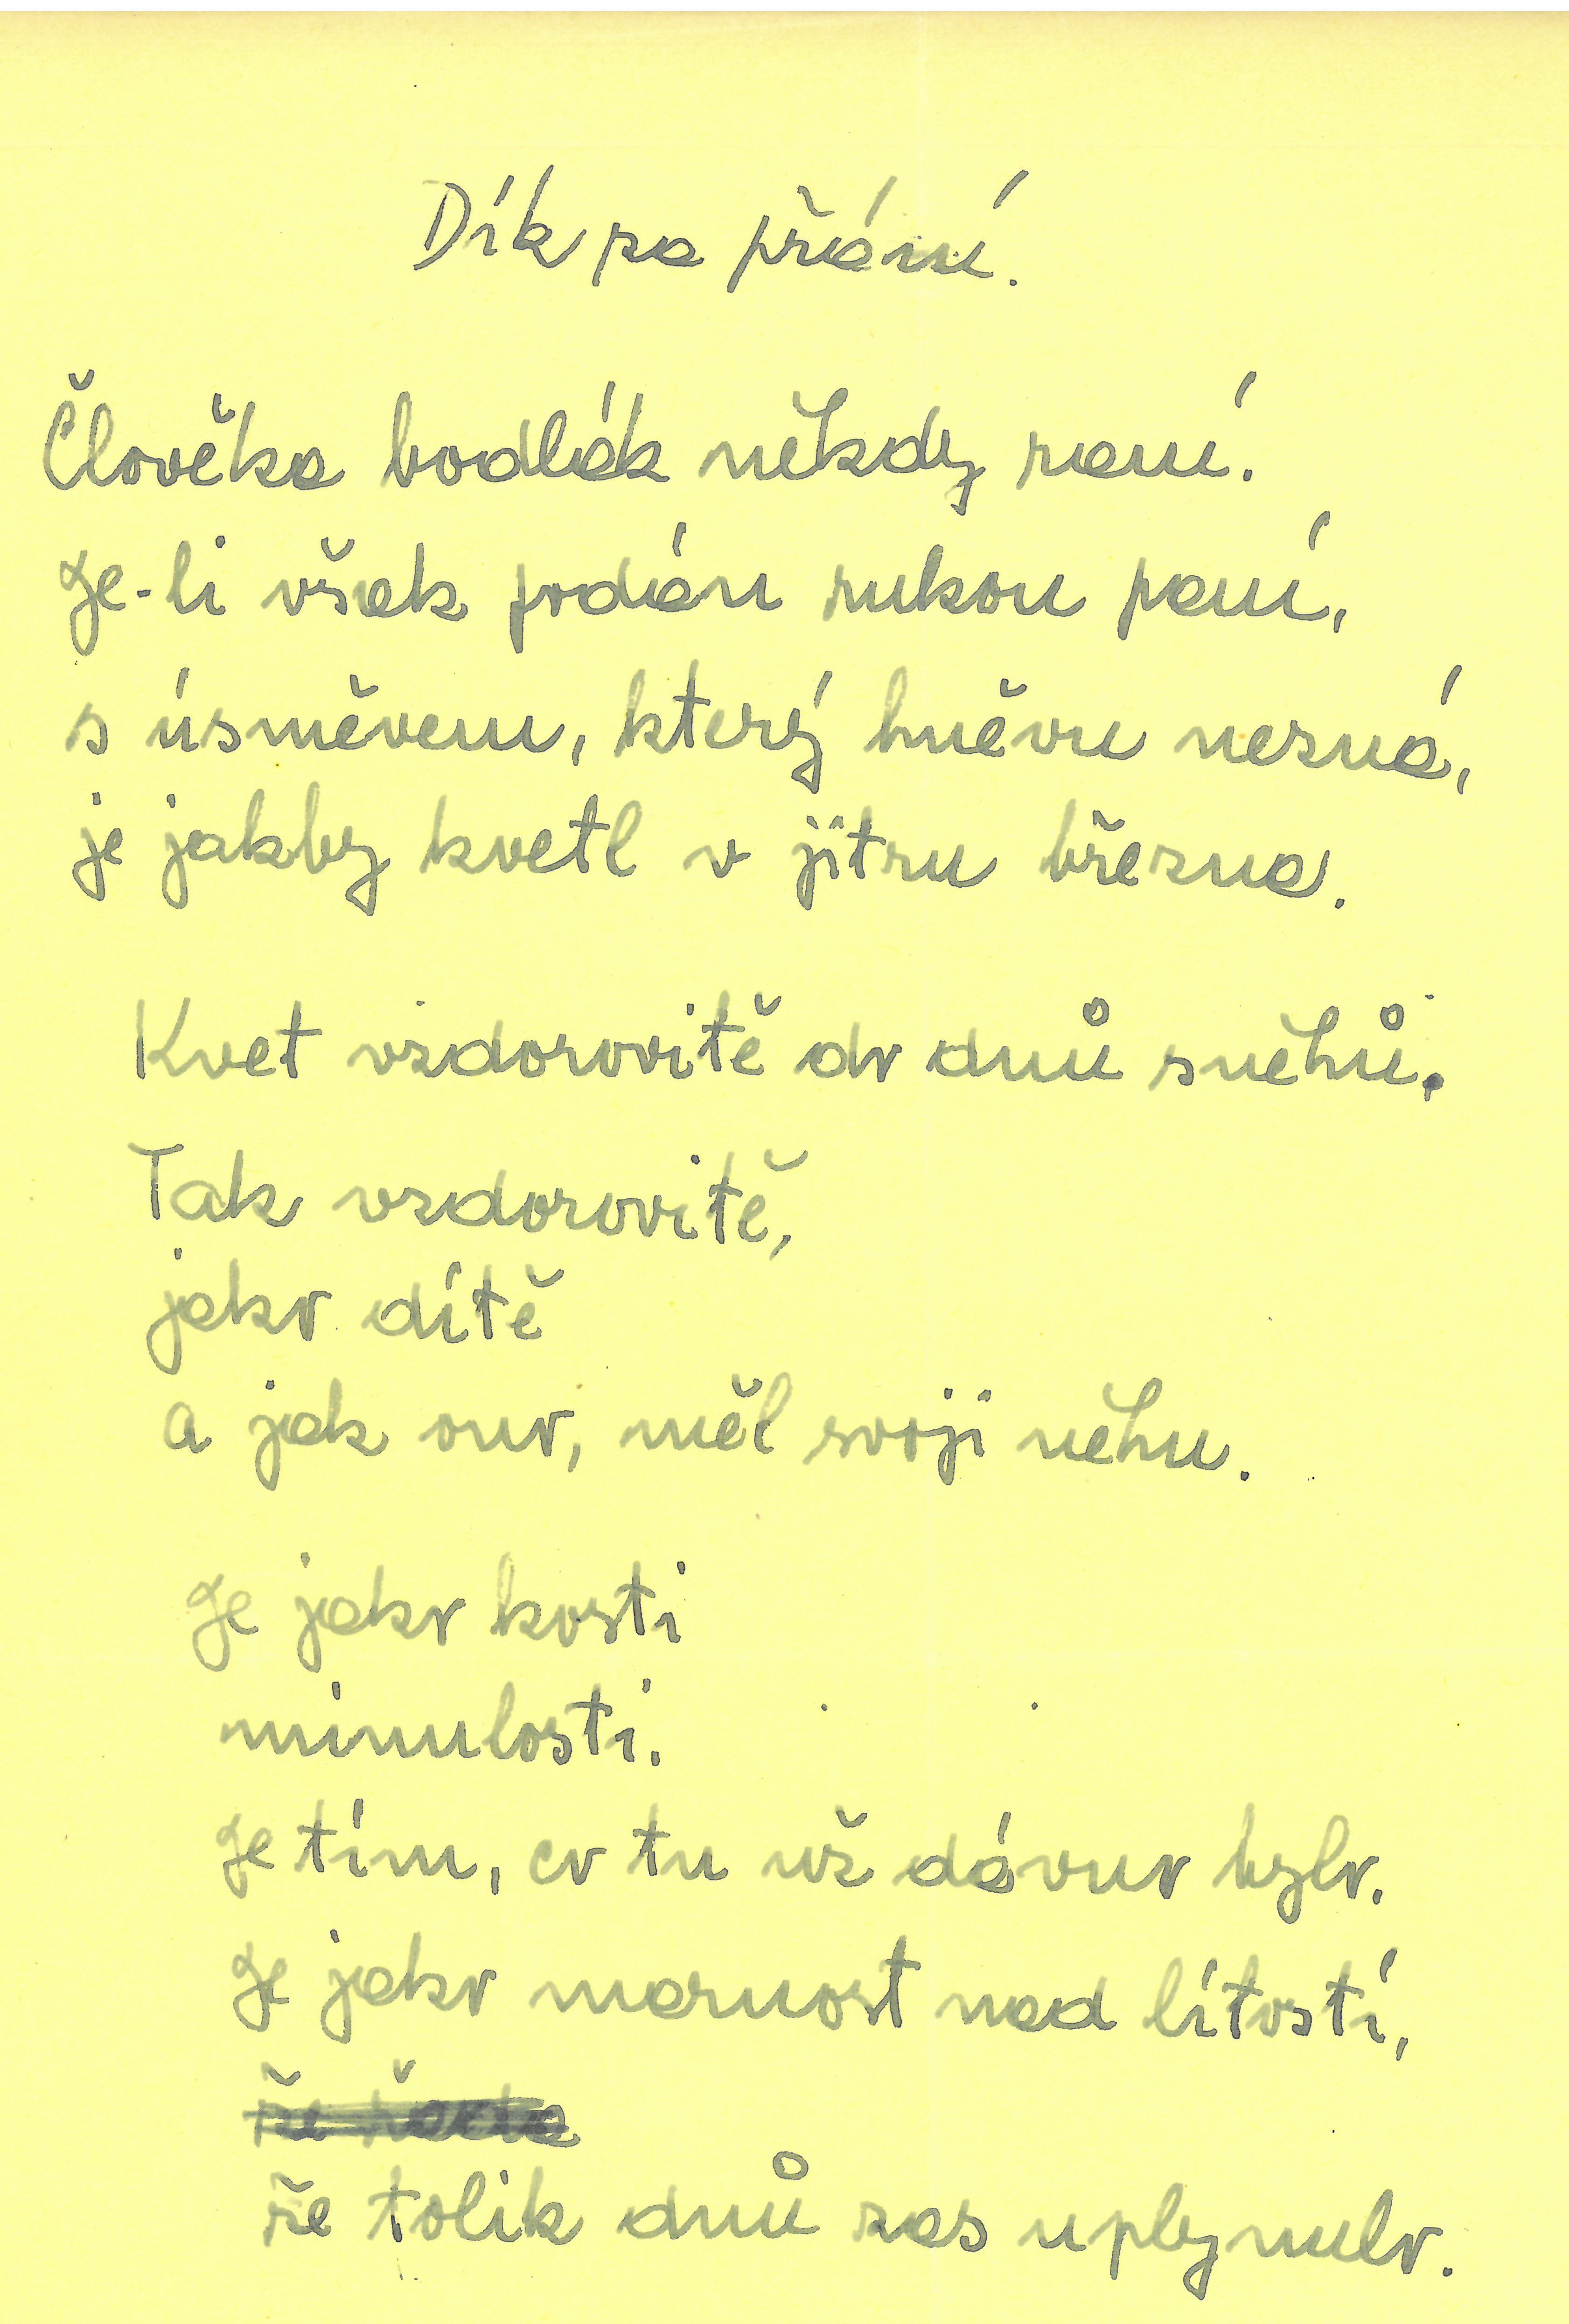 Dík za přání.
Člověka bodlák někdy raní.
Je-li však podán rukou paní,
s úsměvem, který hněvu nezná,
je jakby kvetl v jitru března.
Kvet vzdorovitě do dnů sněhů.
Tak vzdorovitě,
jako dítě
a jak ono, měl svoji něhu.
Je jako kosti
minulosti.
Je tím, co tu už dávno bylo.
Je jako marnost nad lítostí,
že řada
že tolik dnů zas uplynulo.